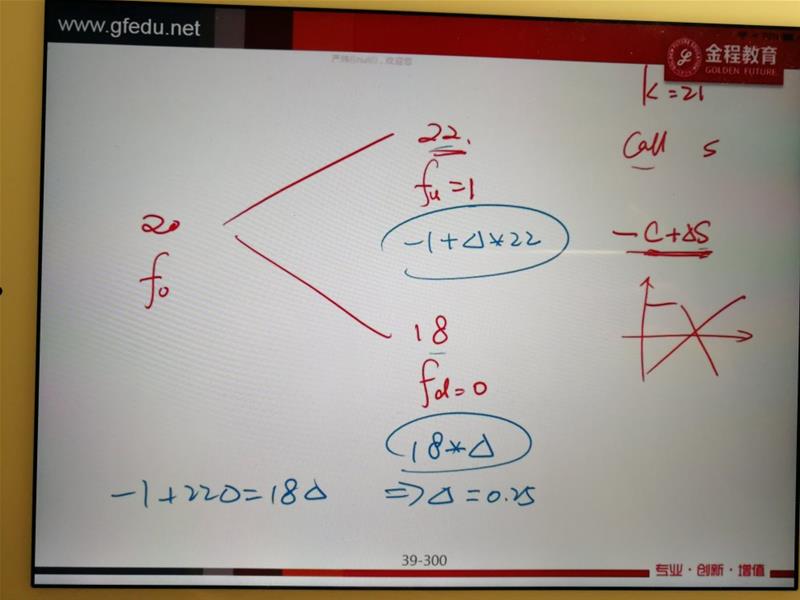 www.gfedu.net
金程教育
GOLDEN FUTURE
k=21
22.
Call S
fu=1
20
-1+Δ*22
-C+ΔS
f0
18
fd=0
18*Δ
-1+22Δ=18Δ => Δ=0.25
39-300
专业·创新·增值